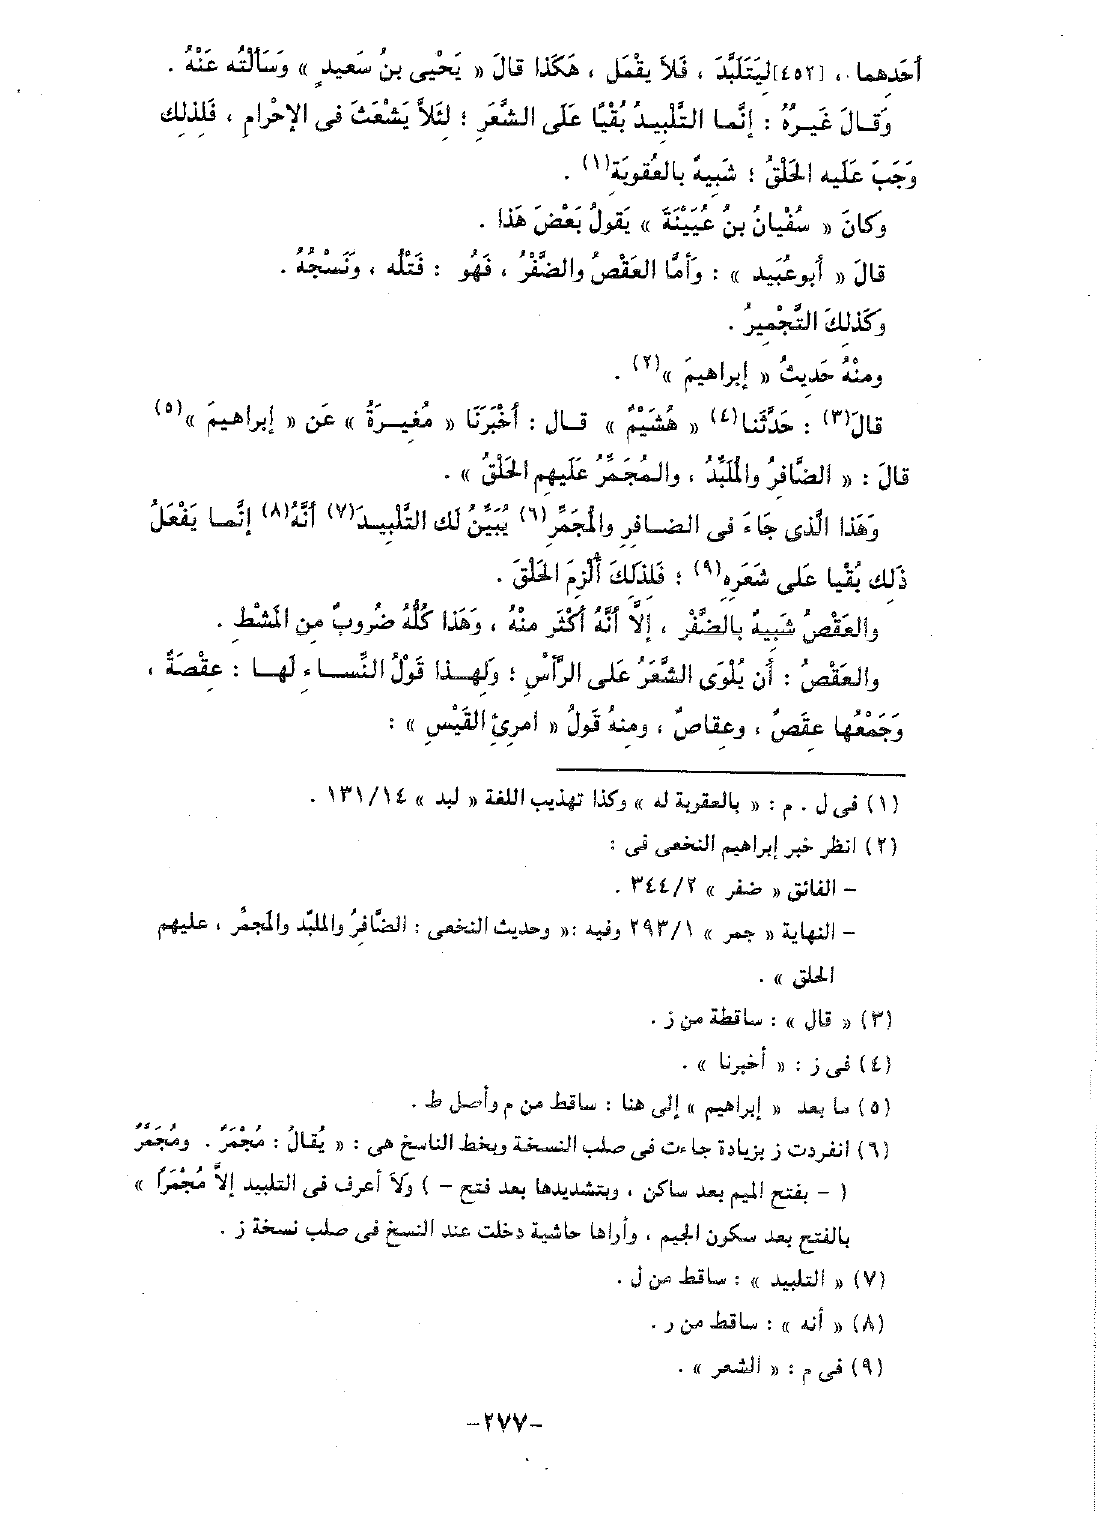 أحَدهما ، [٤٥٢] لِيَتَلَبَّدَ ، فَلاَ يَقْمَل ، هَكَذا قالَ « يَحْيى بنُ سَعيدٍ » وَسَألْتُه عَنْهُ .
وَقَـالَ غَيـرُهُ : إنَّمـا التَّلْبِيـدُ بُقْيًا عَلَى الشَّعَرِ ؛ لئَلاَّ يَشْعَثَ فى الإحْرامِ ، فَلِذلِك
وَجَبَ عَلَيه الحَلْقُ ؛ شَبِيهٌ بالعُقوبَة(١) .
وكانَ « سُفْيانُ بنُ عُيَيْنَةَ » يَقولُ بَعْضَ هَذا .
قالَ « أبوعُبَيد » : وَأمَّا العَقْصُ والضَّفْرُ ، فَهُو : فَتْلُه ، وَنَسْجُهُ .
وَكَذلِكَ التَّجْمِيرُ .
ومنْهُ حَدِيثُ « إبراهيمَ »(٢) .
قالَ(٣) : حَدَّثَنا(٤) « هُشَيْمٌ » قـال : أخْبَرَنَا « مُغِيـرَةُ » عَن « إبراهيمَ »(٥)
قالَ : « الضَّافِرُ والْمُلَبِّدُ ، والـمُجَمِّرُ عَلَيهِم الحَلْقُ » .
وَهَذا الَّذى جَاءَ فى الضـافِرِ والْمُجَمِّرِ(٦) يُبَيِّنُ لك التَّلْبِيـدَ(٧) أنَّهُ(٨) إنَّمـا يَفْعَلُ
ذَلِك بُقْيا عَلى شَعَرِهِ(٩) ؛ فَلِذلِكَ أُلْزِمَ الحَلْقَ .
والعَقْصُ شَبِيهٌ بالضَّفْرِ ، إلاَّ أنَّهُ أكْثَر منْهُ ، وَهَذا كُلُّهُ ضُروبٌ من الْمَشْطِ .
والـعَقْصُ : أن يُلْوَى الشَّعَرُ عَلى الرَّأسِ ؛ ولَهـذا قَوْلُ النِّسـاءِ لَهـا : عِقْصَةٌ ،
وَجَمْعُها عِقَصٌ ، وعِقاصٌ ، ومِنهُ قَولُ « امرِئِ القَيْسِ » :
(١) فى ل . م : « بالعقوبة له » وكذا تهذيب اللغة « لبد » ١٣١/١٤ .
(٢) انظر خبر إبراهيم النخعى فى :
– الفائق « ضفر » ٣٤٤/٢ .
– النهاية « جمر » ٢٩٣/١ وفيه :« وحديث النخعى : الضَّافِرُ والملبِّد والمجمِّر ، عليهم
الحلق » .
(٣) « قال » : ساقطة من ز .
(٤) فى ز : « أخبرنا » .
(٥) ما بعد « إبراهيم » إلى هنا : ساقط من م وأصل ط .
(٦) انفردت ز بزيادة جاءت فى صلب النسخة وبخط الناسخ هى : « يُقالُ : مُجْمَرٌ . ومُجَمَّرٌ
( – بفتح الميم بعد ساكن ، وبتشديدها بعد فتح – ) ولاَ أعرف فى التلبيد إلاَّ مُجْمَرًا »
بالفتح بعد سكون الجيم ، وأراها حاشية دخلت عند النسخ فى صلب نسخة ز .
(٧) « التلبيد » : ساقط من ل .
(٨) « أنه » : ساقط من ر .
(٩) فى م : « الشعر » .
–٢٧٧–